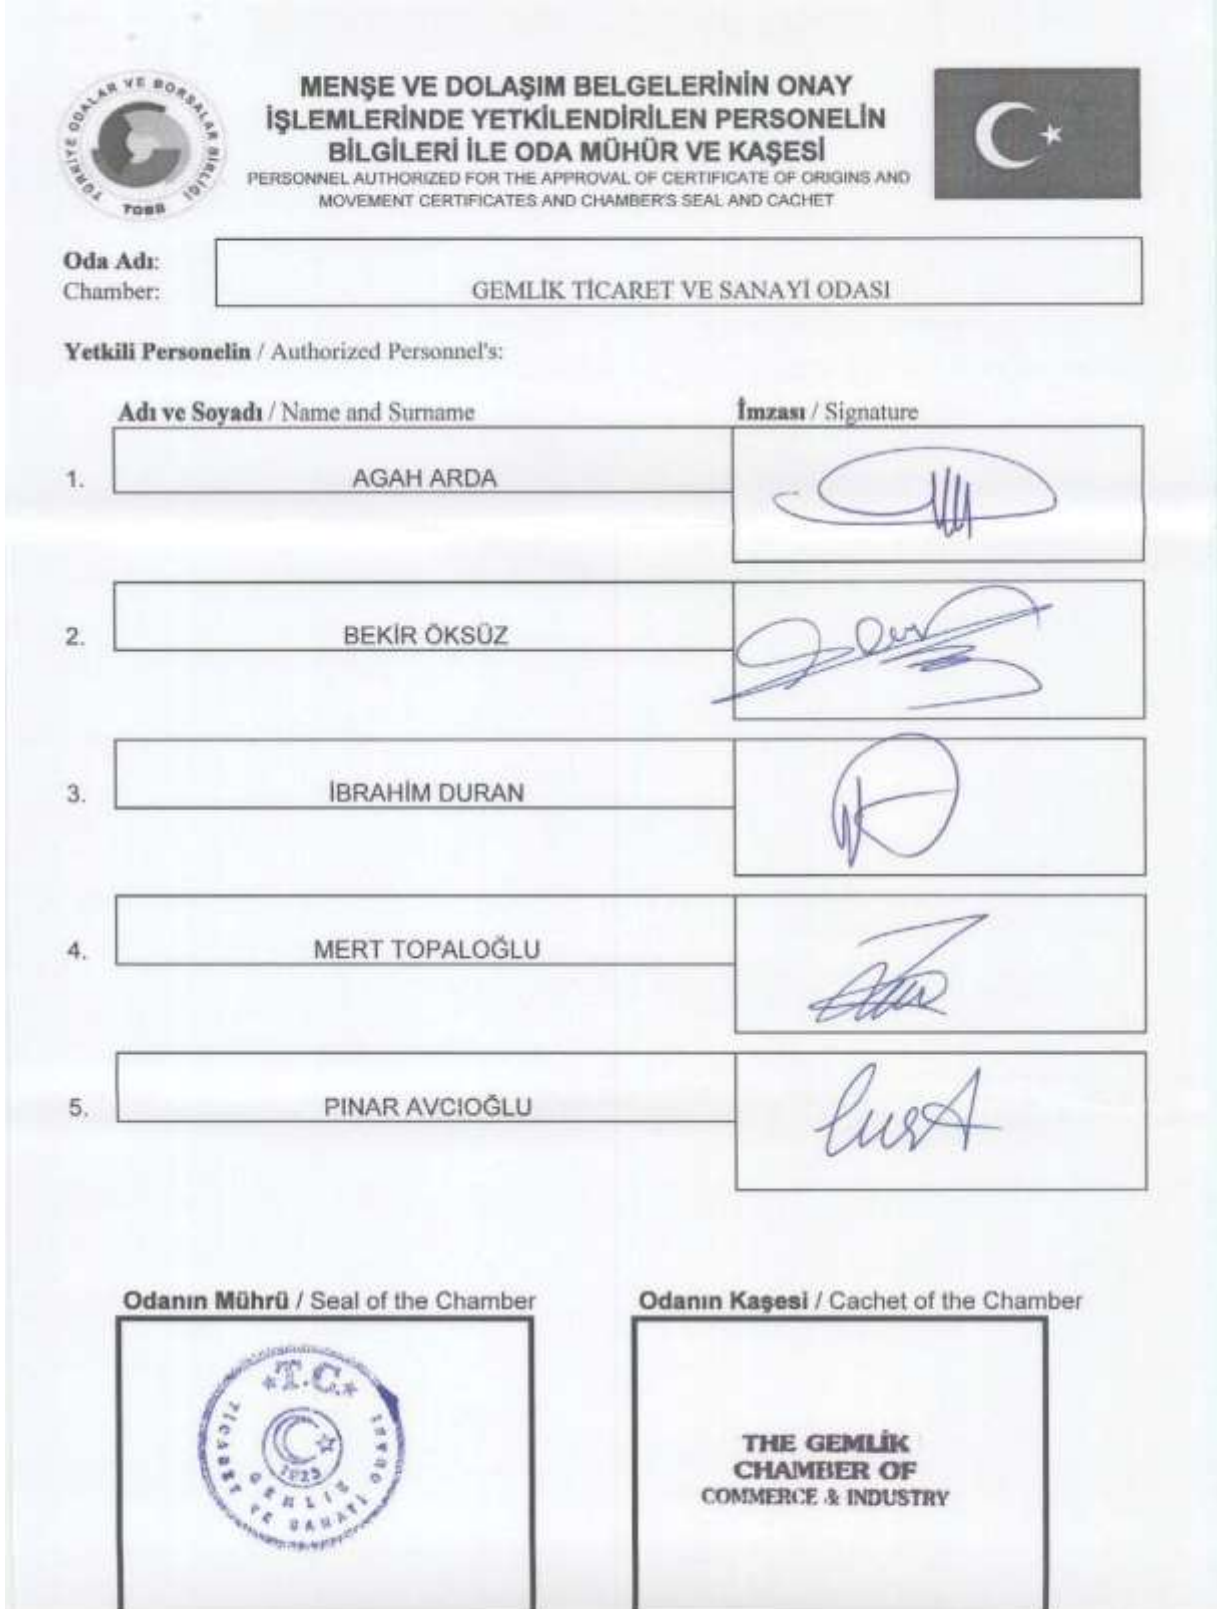 TÜRKİYE ODALAR VE BORSALAR BİRLİĞİ
TOBB
MENŞE VE DOLAŞIM BELGELERİNİN ONAY
İŞLEMLERİNDE YETKİLENDİRİLEN PERSONELİN
BİLGİLERİ İLE ODA MÜHÜR VE KAŞESİ
PERSONNEL AUTHORIZED FOR THE APPROVAL OF CERTIFICATE OF ORIGINS AND
MOVEMENT CERTIFICATES AND CHAMBER'S SEAL AND CACHET
Oda Adı:
Chamber:
GEMLİK TİCARET VE SANAYİ ODASI
Yetkili Personelin / Authorized Personnel's:
Adı ve Soyadı / Name and Surname
İmzası / Signature
1. AGAH ARDA
2. BEKİR ÖKSÜZ
3. İBRAHİM DURAN
4. MERT TOPALOĞLU
5. PINAR AVCIOĞLU
Odanın Mührü / Seal of the Chamber
Odanın Kaşesi / Cachet of the Chamber
*T.C.*
TİCARET VE SANAYİ ODASI
1923
GEMLİK
THE GEMLİK
CHAMBER OF
COMMERCE & INDUSTRY